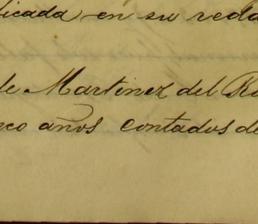 icada en su reda
de Martinez del R
nco años contados de